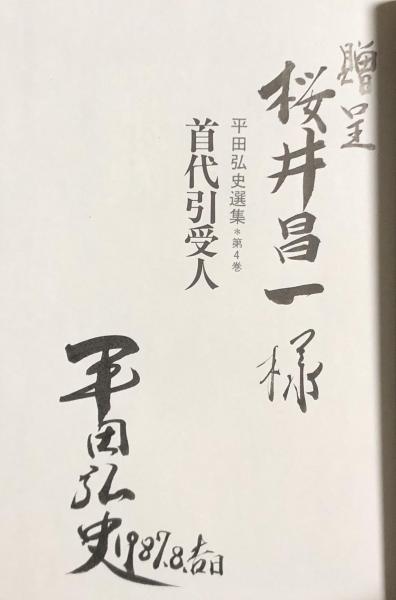 贈呈
桜井昌一様
平田弘史選集*第4巻
首代引受人
平田弘史
1987.8.吉日